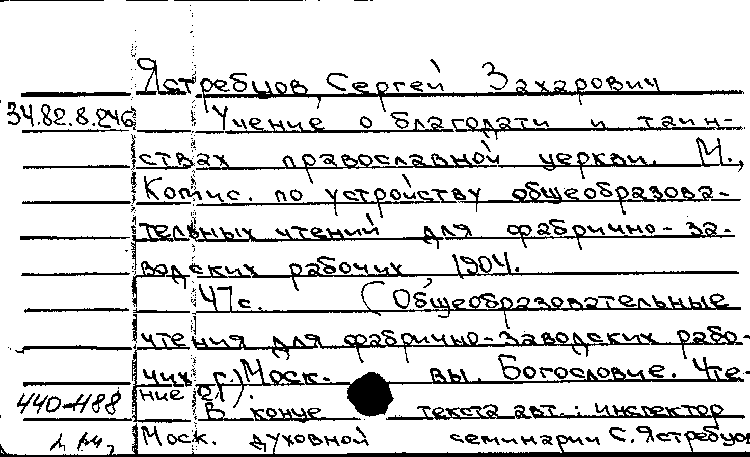 Ястребцов, Сергей Захарович
34.82.8.246 Учение о благодати и таин-
ствах православной церкви. М.,
Комис. по устройству общеобразова-
тельных чтений для фабрично-за-
водских рабочих 1904.
47с. (Общеобразовательные
чтения для фабрично-заводских рабо-
чих г. Моск- вы. Богословие. Чте-
ние 21).
440-488 В конце текста авт.: инспектор
Моск. духовной семинарии С. Ястребцов